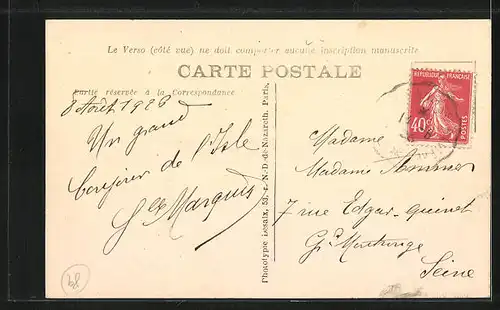 Le Verso (côté vue) ne doit comporter aucune inscription manuscrite
CARTE POSTALE
Partie réservée à la Correspondance
8 Août 1926
Un grand
bonjour de l'Isle
Marquis
Phototypie Lesaix, 53, r. N.-D.-de-Nazareth, Paris.
RÉPUBLIQUE FRANÇAISE
40c
POSTES
Madame
Madame Sommer
7 rue Edgar-Quinet
Gd Montrouge
Seine
68